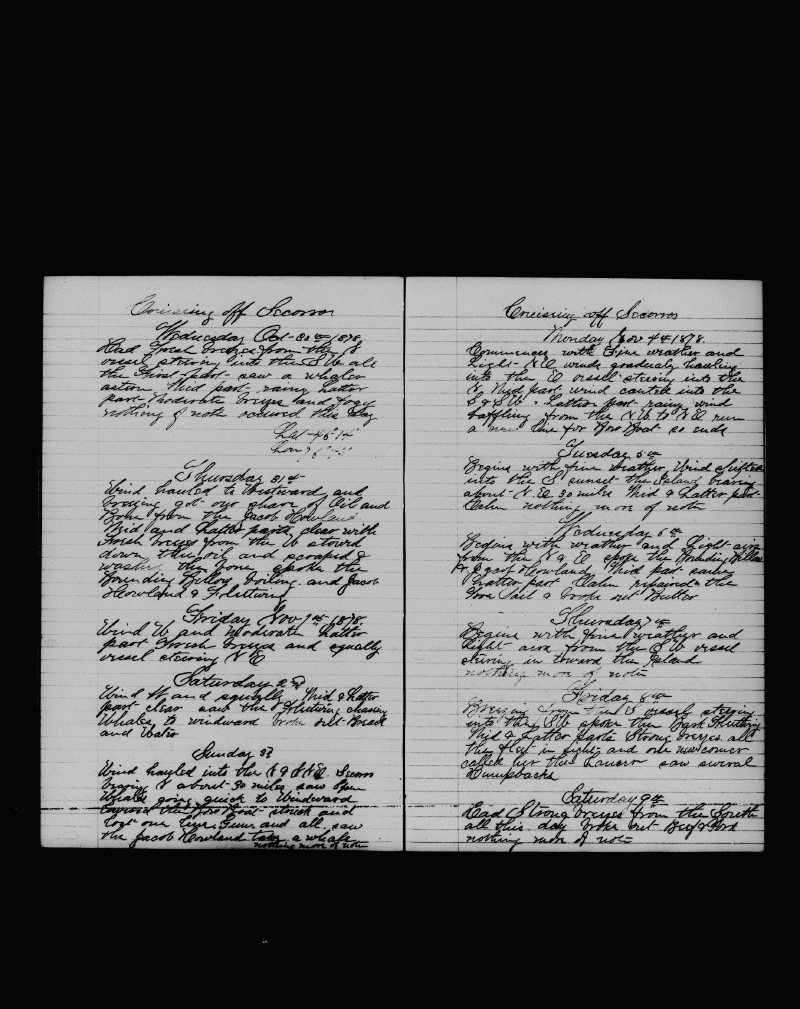 Cruising off Socorros
Wednesday Oct 30th 1878
Had fresh breeze from the N
vessel stering into the S W all
the first part saw a whaler
astern Mid part rainy Latter
part Moderate breeze and fogy
nothing of note occured this day
Lat 48 14
Lon
Thursday 31st
Wind hauled to Westward and
breezing got our share of Oil and
bone from the Jacob Howland
Mid and Latter parts clear with
fresh breeze from the W stowed
down the oil and scraped &
washed the bone spoke the
Bounding Billow boiling and Jacob
Howland &
Friday Nov 1st 1878
Wind W and Moderate Latter
part fresh breeze and squally
vessel stering N E
Saturday 2nd
Wind W and squally Mid & Latter
part clear saw the chasing
Whales to windward broke out Bread
and Water
Sunday 3d
Wind hauled into the N & N N E Socorro
bearing N about 30 miles saw
Whales going quick to Windward
lowered the Bow Boat struck and
lost our Line Gun and all saw
the Jacob Howland take a whale
nothing more of note
Cruising off Socorros
Monday Nov 4th 1878
Commences with fine weather and
Light N E winds gradualy hauling
into the E vessel stering into the
N Mid part wind canted into the
S & S W Latter part rainy wind
baffling from the N W to N E run
a new line for Bow Boat so ends
Tuesday 5th
Begins with fine weather Wind shifted
into the S sunset the Island bearing
about N E 30 miles Mid & Latter part
Calm nothing more of note
Wednesday 6th
Begins with weather and Light airs
from the N & E spoke the Bounding Billow
& Jacob Howland Mid part same
Latter part Calm repaired the
Fore Sail & broke out Butter
Thursday 7th
Begins with fine weather and
light airs from the S W vessel
stering in toward the Island
nothing more of note
Friday 8th
Breezing from the S vessel stering
into the S E spoke the Bark
Mid & Latter parts Strong breezes all
the fleet in sight and one new comer
called her the Lancer saw several
Humpbacks
Saturday 9th
Had Strong breezes from the South
all this day broke out Beef & Pork
nothing more of note